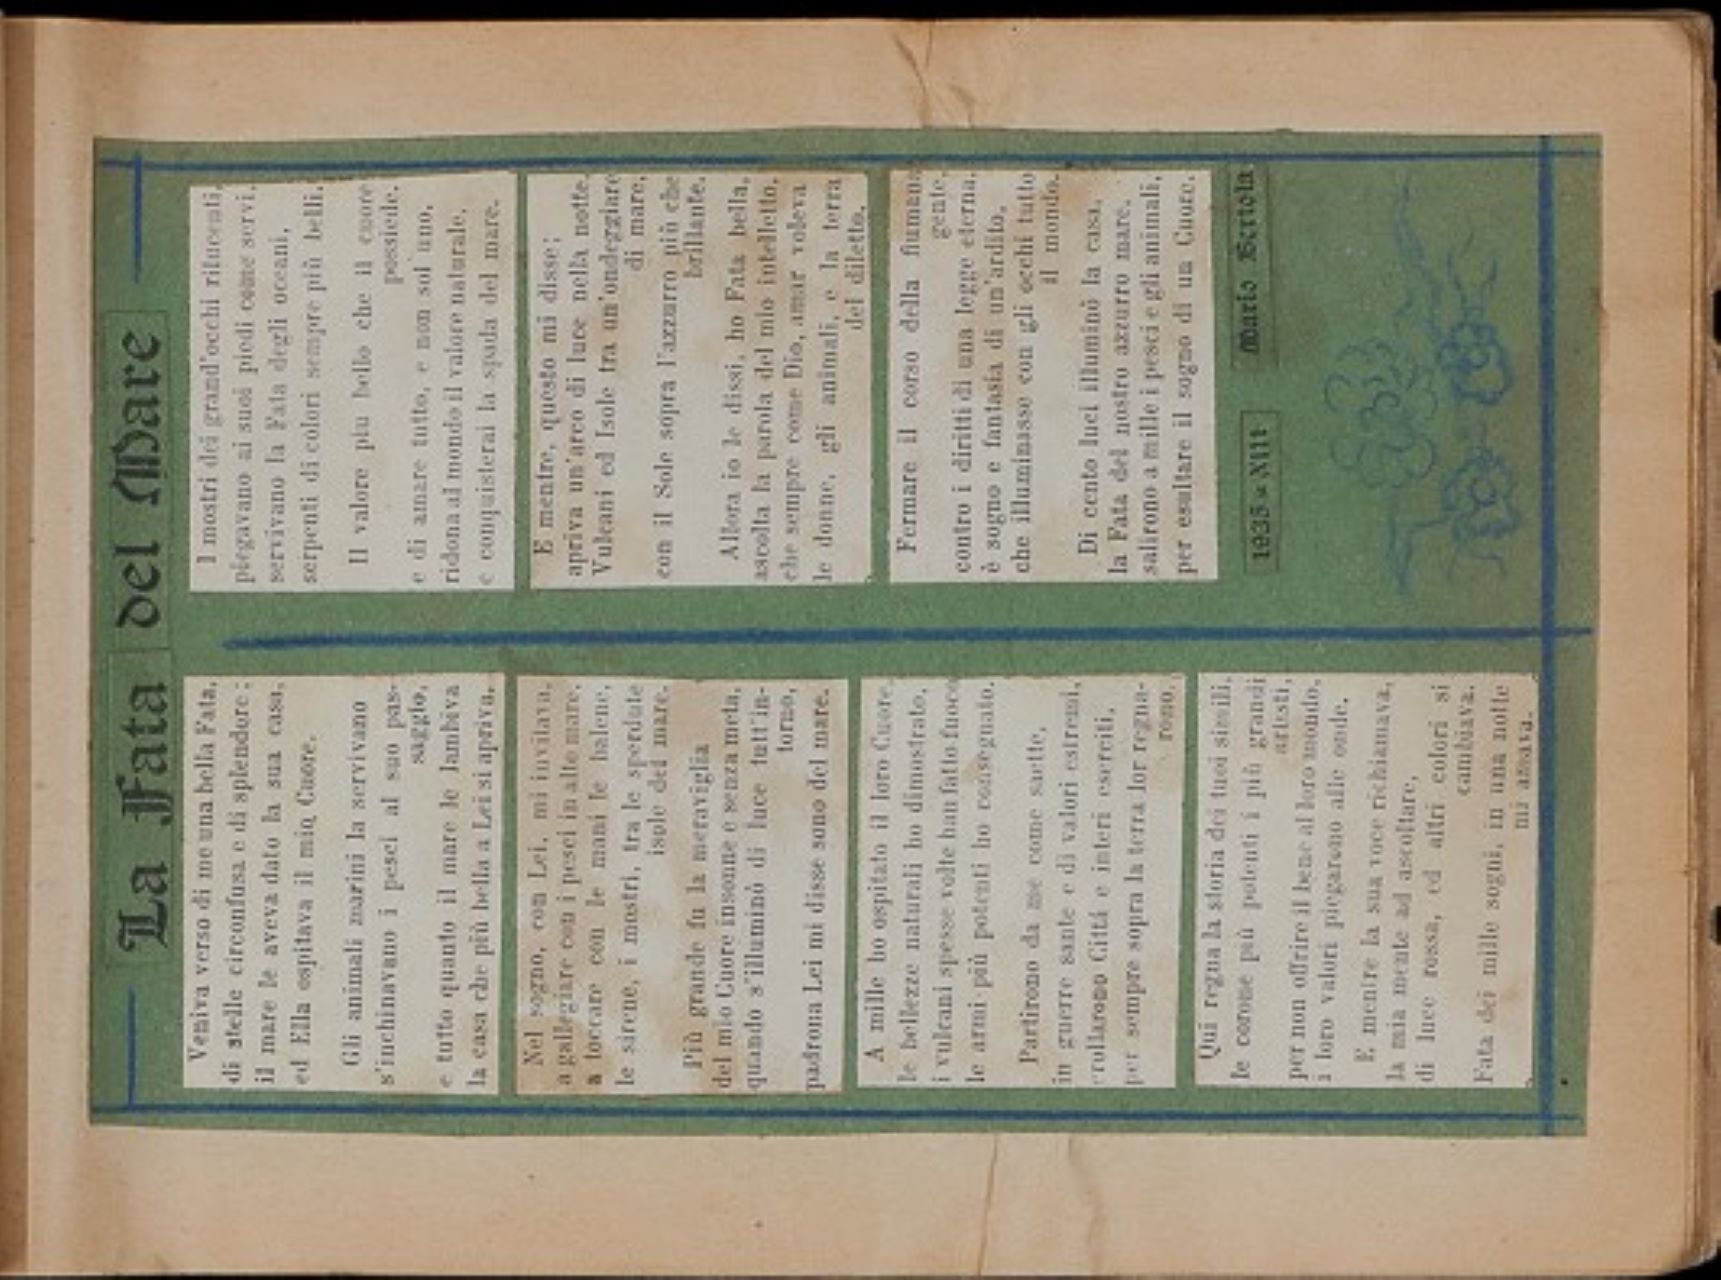 La Fata del Mare
Veniva verso di me una bella Fata,
di stelle circonfusa e di splendore:
il mare le aveva dato la sua casa,
ed Ella ospitava il mio Cuore.
Gli animali marini la servivano
s'inchinavano i pesci al suo pas-
saggio,
e tutto quanto il mare le lambiva
la casa che più bella a Lei si apriva.
Nel sogno, con Lei, mi invitava,
a gallegiare con i pesci in alto mare,
a toccare con le mani le balene,
le sirene, i mostri, tra le sperdute
isole del mare.
Più grande fu la meraviglia
del mio Cuore insonne e senza meta,
quando s'illuminò di luce tutt'in-
torno,
padrona Lei mi disse sono del mare.
A mille ho ospitato il loro Cuore,
le bellezze naturali ho dimostrato,
i vulcani spesse volte han fatto fuoco
le armi più potenti ho consegnato.
Partirono da me come saette,
in guerre sante e di valori estremi,
crollarono Città e interi eserciti,
per sempre sopra la terra lor regna-
rono.
Qui regna la storia dei tuoi simili,
le corone più potenti i più grandi
artisti,
per non offrire il bene al loro mondo,
i loro valori piegarono alle onde.
E mentre la sua voce richiamava,
la mia mente ad ascoltare,
di luce rossa, ed altri colori si
cambiava.
Fata dei mille sogni, in una notte
mi amava.
I mostri dei grand'occhi rilucenti,
piegavano ai suoi piedi come servi,
servivano la Fata degli oceani,
serpenti di colori sempre più belli.
Il valore più bello che il cuore
possiede,
e di amare tutto, e non sol uno,
ridona al mondo il valore naturale,
e conquisterai la spada del mare.
E mentre, questo mi disse;
apriva un'arco di luce nella notte,
Vulcani ed Isole tra un'ondeggiare
di mare,
con il Sole sopra l'azzurro più che
brillante.
Allora io le dissi, ho Fata bella,
ascolta la parola del mio intelletto,
che sempre come Dio, amar voleva
le donne, gli animali, e la terra
del diletto.
Fermare il corso della fiumana
gente,
contro i diritti di una legge eterna,
è sogno e fantasia di un'ardito,
che illuminasse con gli occhi tutto
il mondo.
Di cento luci illuminò la casa,
la Fata del nostro azzurro mare,
salirono a mille i pesci e gli animali,
per esultare il sogno di un Cuore.
1935=XIII Mario Bertola